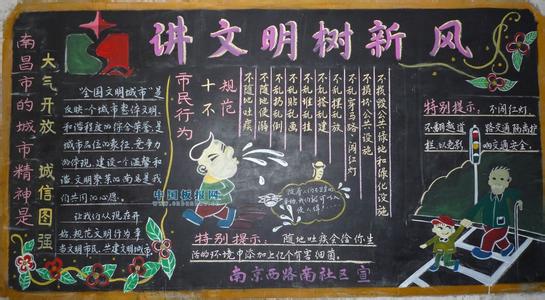 讲文明树新风
南昌市的城市精神是
大气开放 诚信图强
"全国文明城市"是
反映一个城市整体文明
和谐程度的综合荣誉,是
我们共同的心愿。
让我们从现在开
始,规范文明行为争
当文明市民,共建文明城市
市民行为
十不
规范
不随地吐痰
不随地便溺
不乱扔乱倒
不乱贴乱画
不乱堆乱挂
不乱搭乱建
不乱摆乱放
不乱穿马路、闯红灯
不损坏公共设施
不毁绿化地和绿化设施
中国板报网
特别提示:随地吐痰会给你生
活的环境中添加上亿个有害细菌。
特别提示:不闯红灯。
不翻越道路交通防高护
栏,以免影响交通安全。
南京西路南社区宣